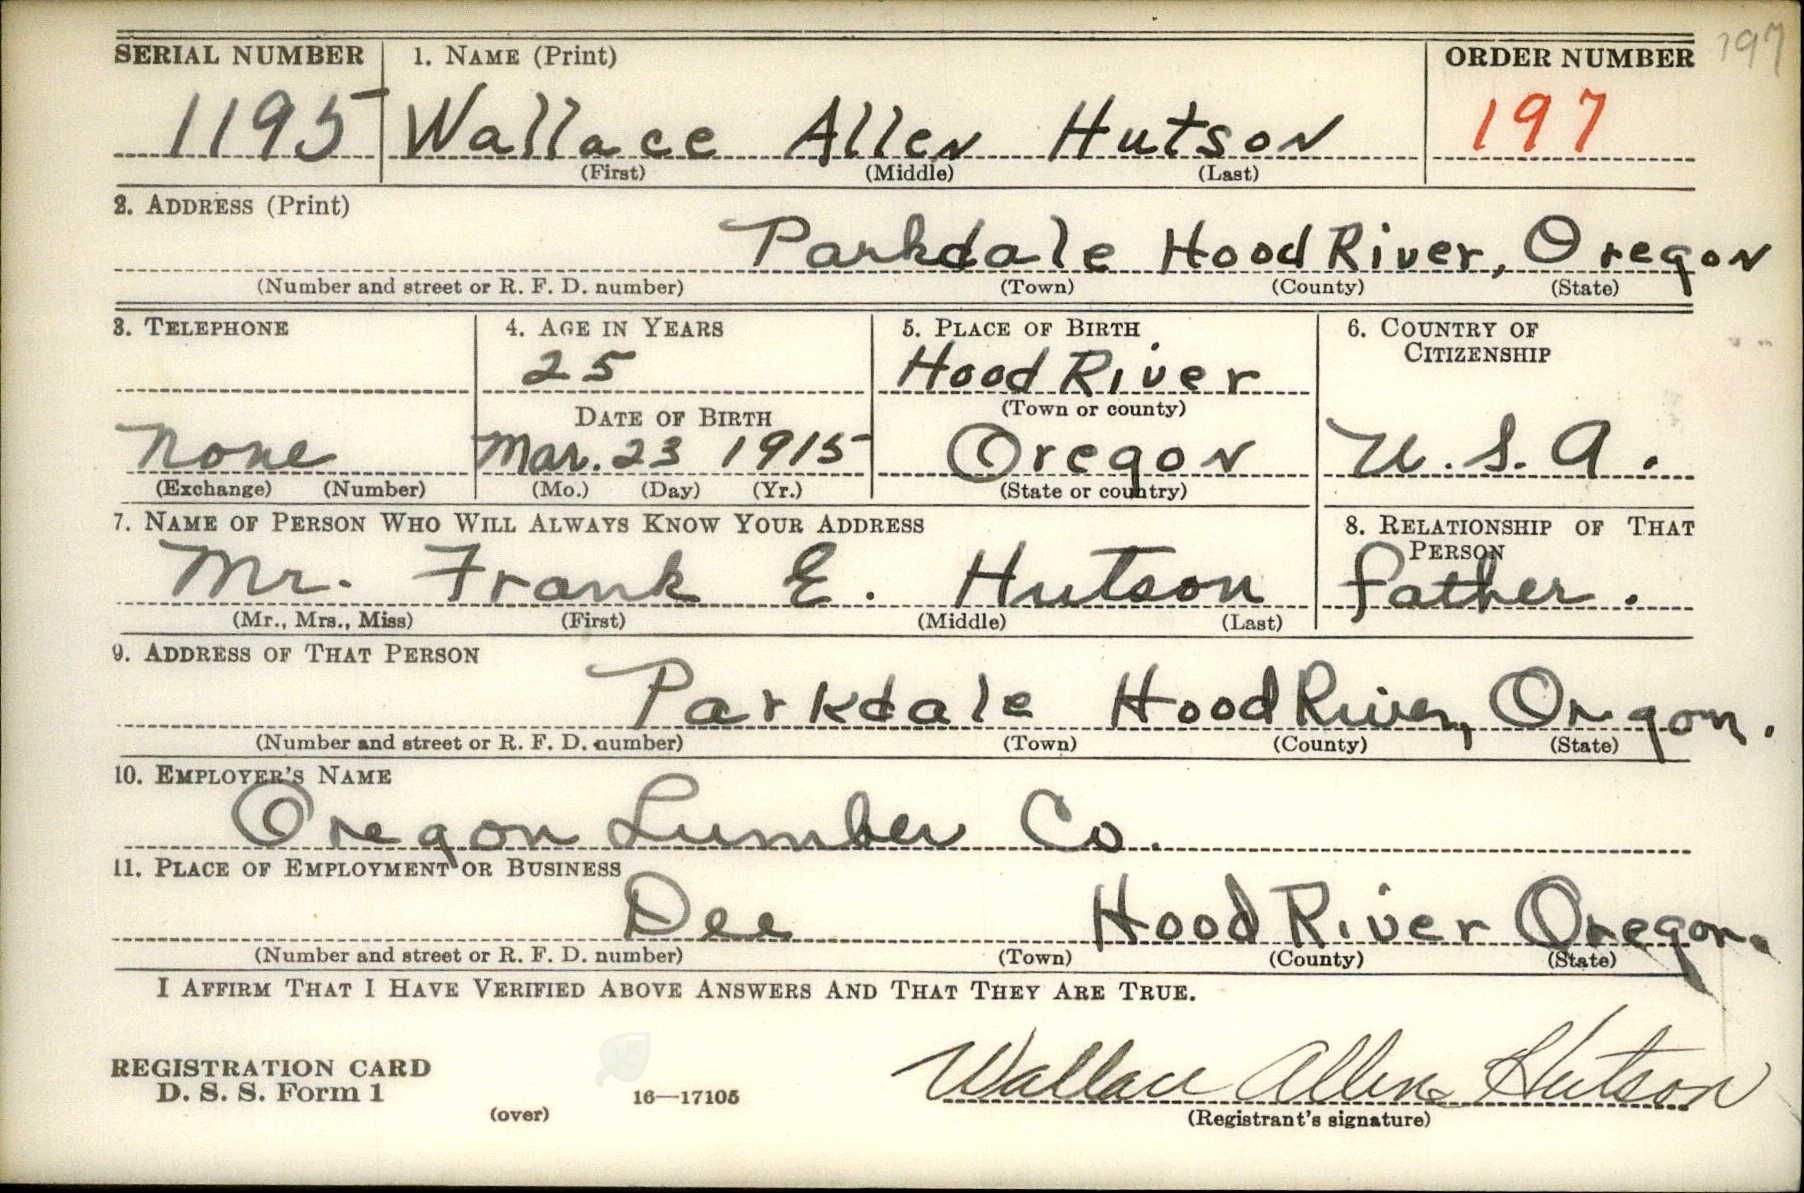 197
SERIAL NUMBER 1. NAME (Print) ORDER NUMBER
1195 Wallace Allen Hutson 197
(First) (Middle) (Last)
2. ADDRESS (Print)
Parkdale Hood River, Oregon
(Number and street or R. F. D. number) (Town) (County) (State)
3. TELEPHONE 4. AGE IN YEARS 5. PLACE OF BIRTH 6. COUNTRY OF
CITIZENSHIP
25 Hood River
(Town or county)
DATE OF BIRTH
None Mar. 23 1915 Oregon U. S. A.
(Exchange) (Number) (Mo.) (Day) (Yr.) (State or country)
7. NAME OF PERSON WHO WILL ALWAYS KNOW YOUR ADDRESS 8. RELATIONSHIP OF THAT
PERSON
Mr. Frank E. Hutson father.
(Mr., Mrs., Miss) (First) (Middle) (Last)
9. ADDRESS OF THAT PERSON
Parkdale Hood River, Oregon.
(Number and street or R. F. D. number) (Town) (County) (State)
10. EMPLOYER'S NAME
Oregon Lumber Co.
11. PLACE OF EMPLOYMENT OR BUSINESS
Dee Hood River Oregon.
(Number and street or R. F. D. number) (Town) (County) (State)
I AFFIRM THAT I HAVE VERIFIED ABOVE ANSWERS AND THAT THEY ARE TRUE.
REGISTRATION CARD
D. S. S. Form 1
(over) 16—17105
Wallace Allen Hutson
(Registrant's signature)